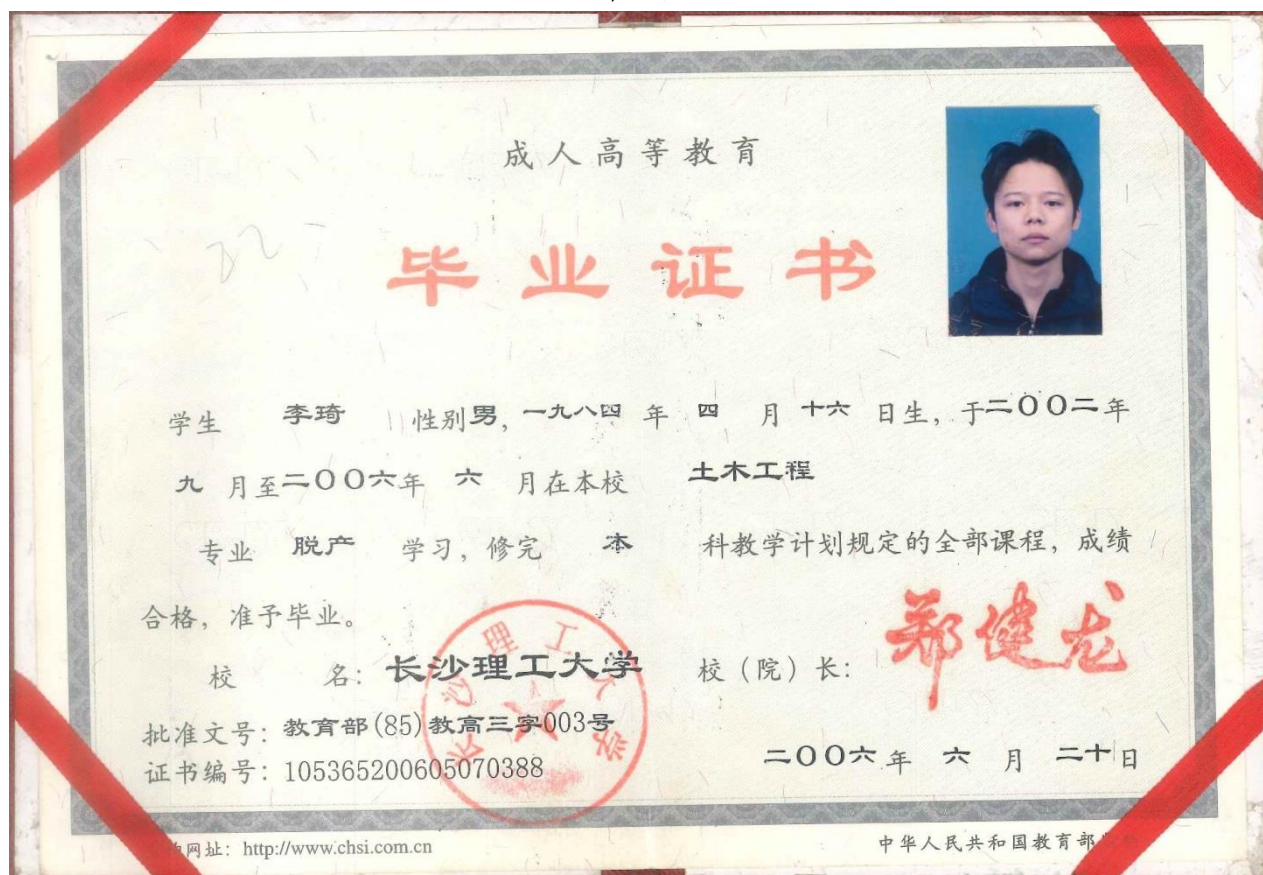 成人高等教育
22
毕业证书
学生 李琦 性别男, 一九八四 年 四 月 十六 日生, 于二〇〇二年
九 月至二〇〇六年 六 月在本校 土木工程
专业 脱产 学习, 修完 本 科教学计划规定的全部课程, 成绩
合格, 准予毕业。
校 名: 长沙理工大学 校（院）长: 郑健龙
长沙理工大学
批准文号: 教育部(85)教高三字003号
证书编号: 105365200605070388
二〇〇六年 六 月 二十日
网址: http://www.chsi.com.cn 中华人民共和国教育部